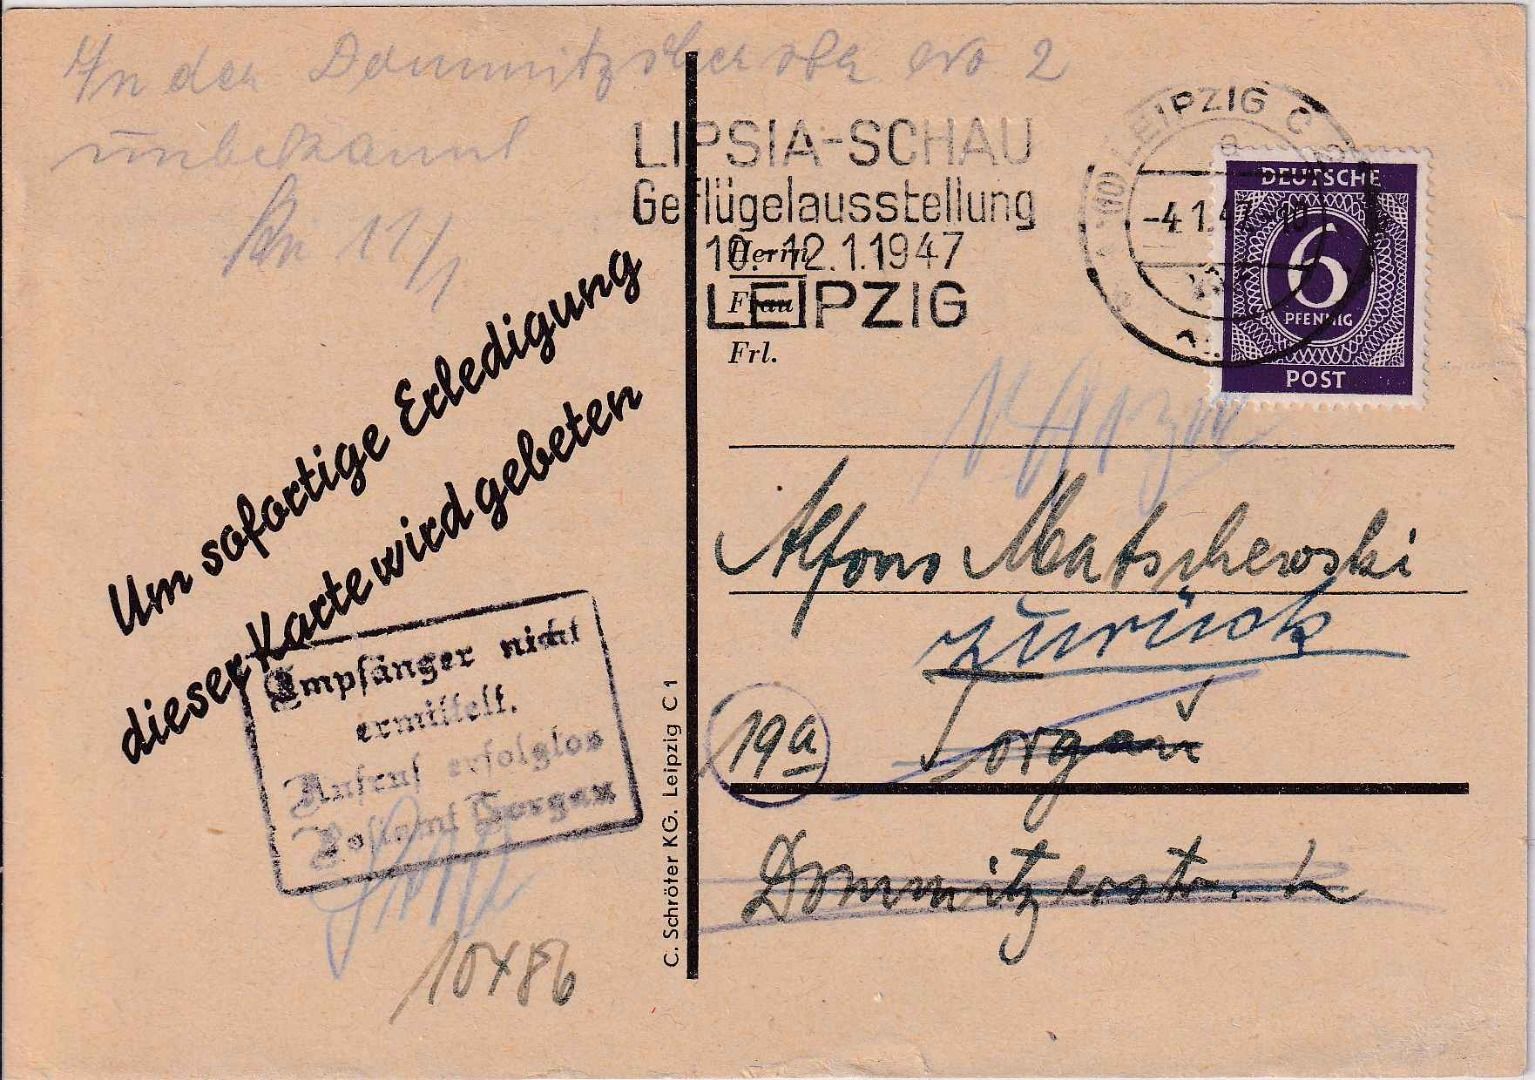 In der Dommitzscherstr No 2
unbekannt
11/1
LIPSIA-SCHAU
Geflügelausstellung
10.-12.1.1947
LEIPZIG
(10) LEIPZIG C
a
-4.1.47.-10
DEUTSCHE
6
PFENNIG
POST
Herrn
Frau
Frl.
Um sofortige Erledigung
dieser Karte wird gebeten
Alfons Matschewski
zurück
19a
Torgau
Dommitzerstr. 2
Empfänger nicht
ermittelt.
Ausruf erfolglos
Postamt Torgau
10486
C. Schröter KG. Leipzig C 1